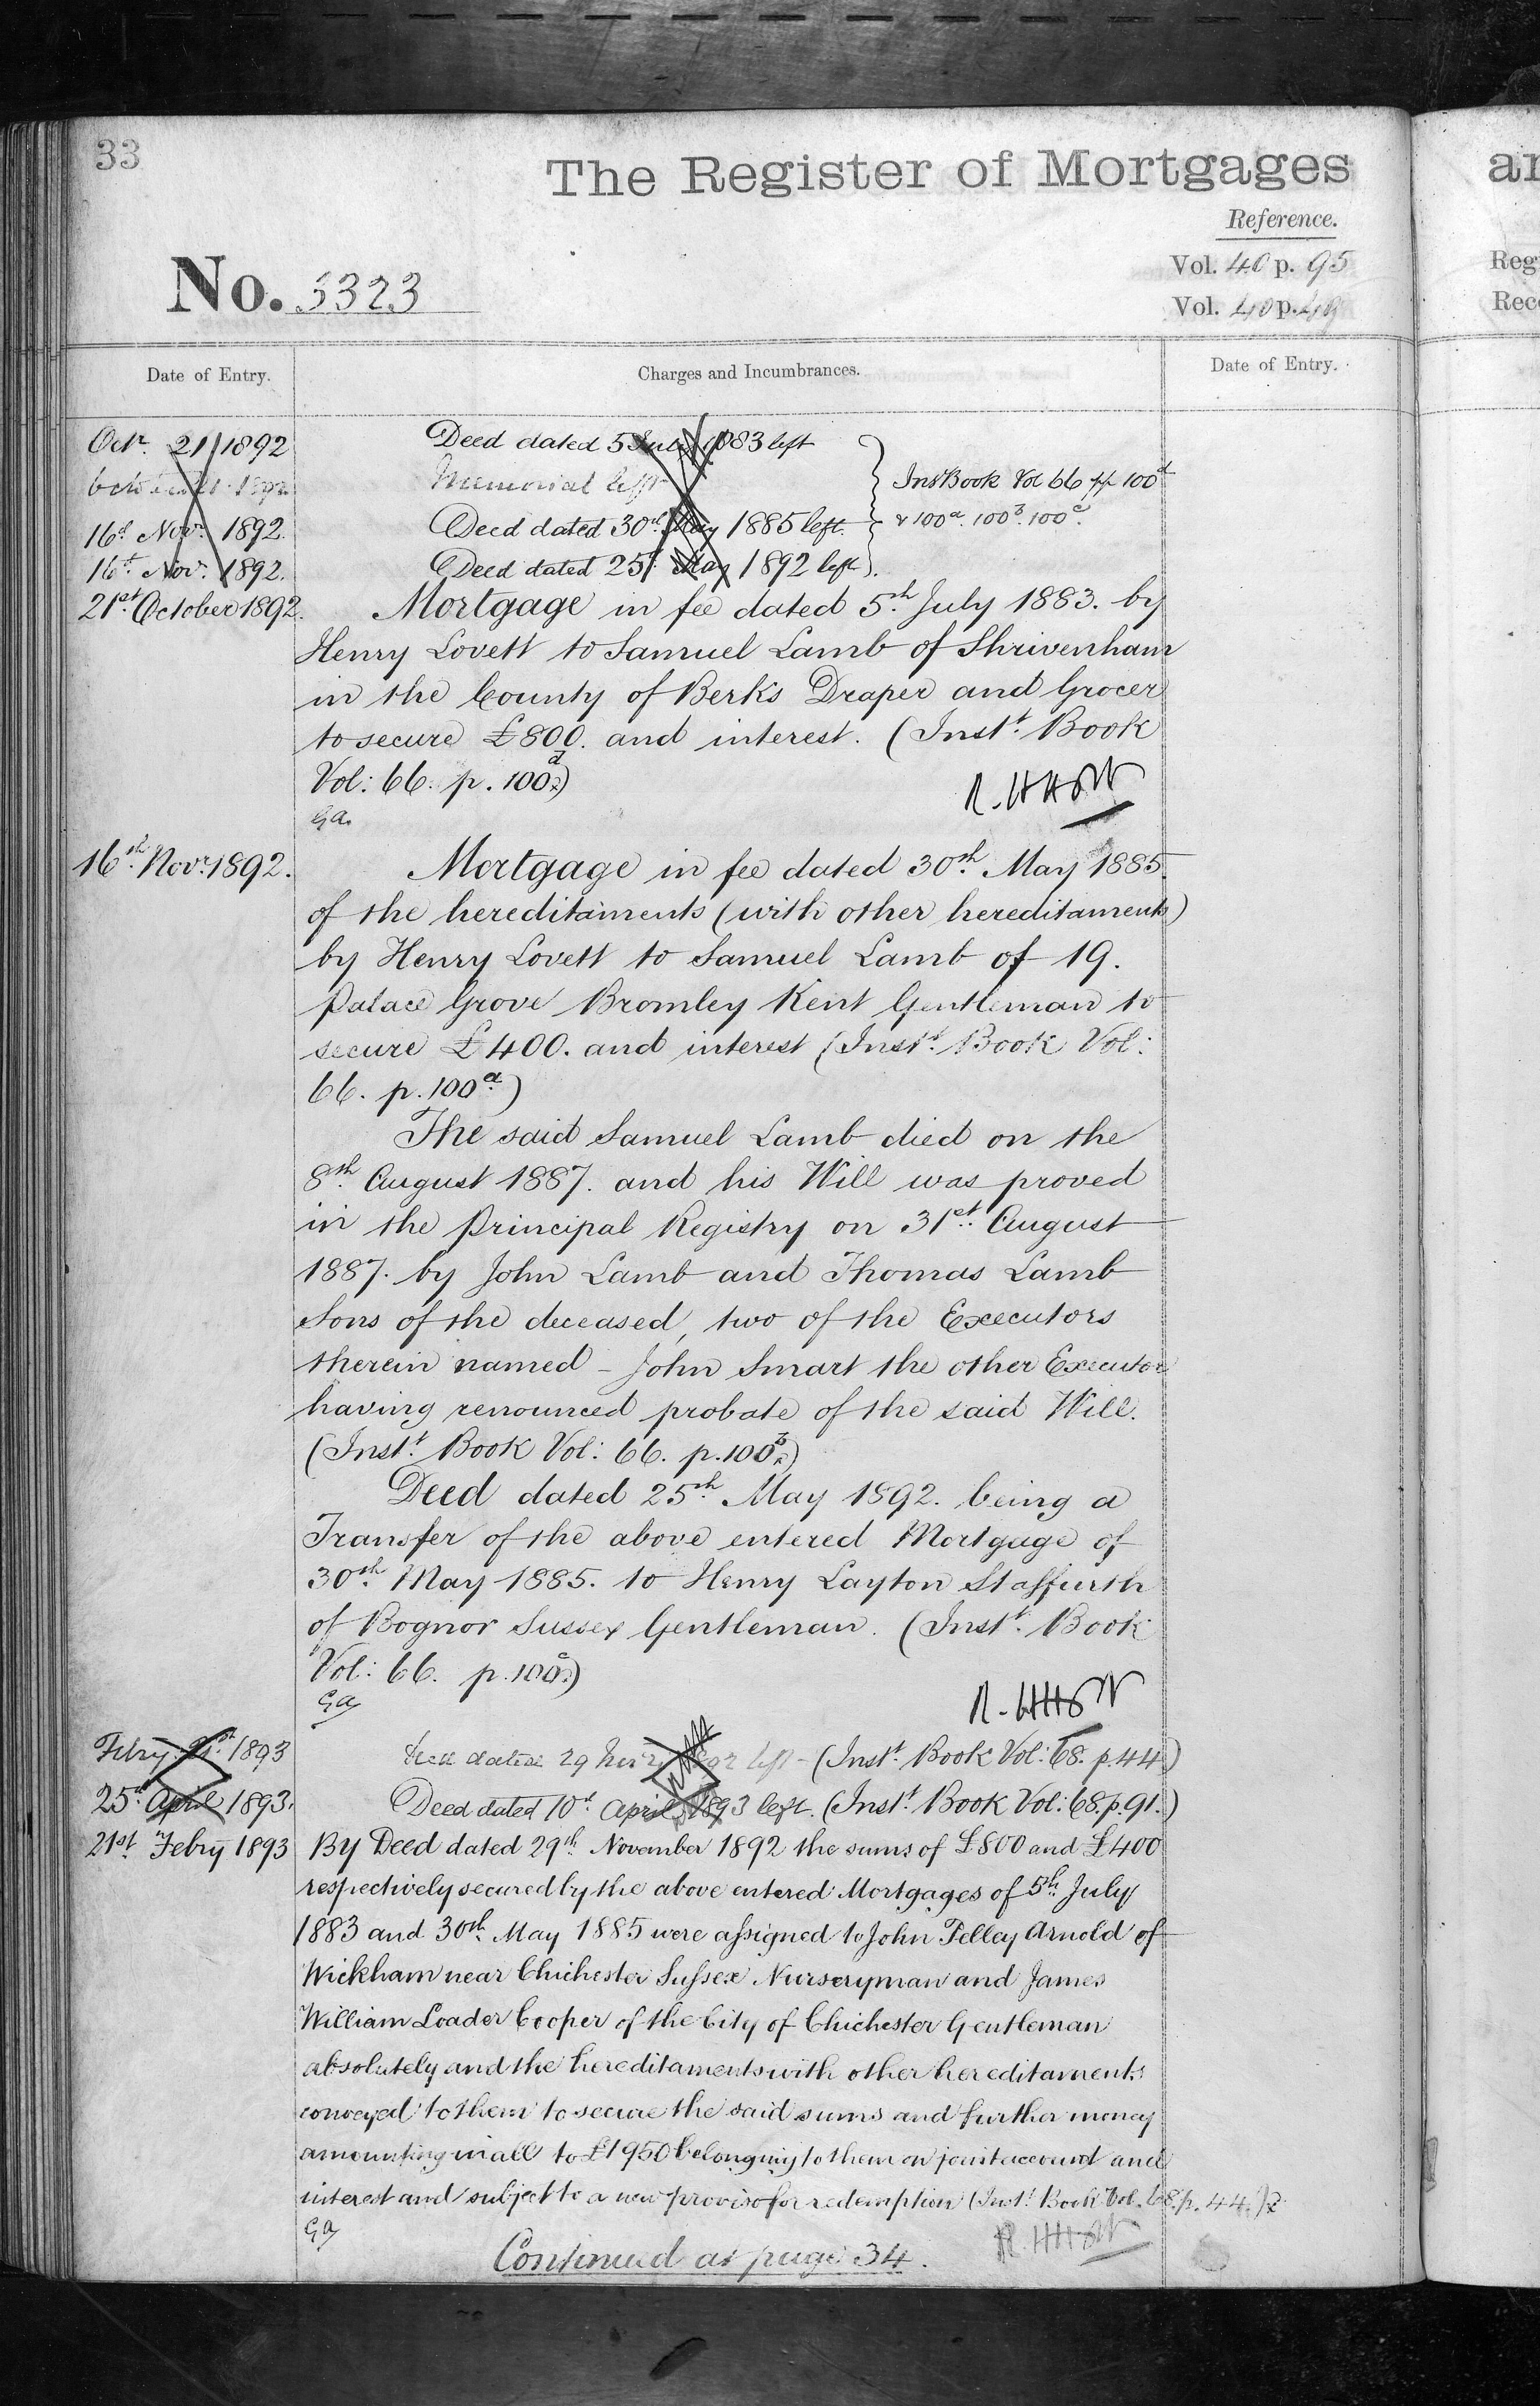 33
The Register of Mortgages
Reference.
No. 5323
Vol. 40 p. 95
Vol. 40 p. 49
Date of Entry.
Charges and Incumbrances.
Date of Entry.
Octr. 21/1892
Deed dated 5 July 1883 left
Memorial left
InstBook Vol 66 pp 100d
16th Novr. 1892.
Deed dated 30th May 1885 left.
& 100a. 100b. 100c.
16th Novr. 1892.
Deed dated 25th May 1892 left.
21st October 1892.
Mortgage in fee dated 5th July 1883. by
Henry Lovett to Samuel Lamb of Shrivenham
in the County of Berks Draper and Grocer
to secure £800. and interest. (Inst. Book
Vol: 66. p. 100d.)
Ga.
16th Novr. 1892.
Mortgage in fee dated 30th May 1885.
of the hereditaments (with other hereditaments)
by Henry Lovett to Samuel Lamb of 19.
Palace Grove Bromley Kent Gentleman to
secure £400. and interest (Inst. Book Vol:
66. p. 100a.)
The said Samuel Lamb died on the
8th August 1887. and his Will was proved
in the Principal Registry on 31st August
1887. by John Lamb and Thomas Lamb
Sons of the deceased, two of the Executors
therein named - John Smart the other Executor
having renounced probate of the said Will.
(Inst. Book Vol: 66. p. 100b.)
Deed dated 25th May 1892. being a
Transfer of the above entered Mortgage of
30th May 1885. to Henry Layton Staffurth
of Bognor Sussex Gentleman. (Inst. Book
Vol: 66. p. 100c.)
Ga
Febry. 21st 1893
Deed dated 29 Novr 1892 left - (Inst. Book Vol: 68. p. 44.)
25th April 1893.
Deed dated 10th April 1893 left. (Inst. Book Vol: 68. p. 91.)
21st Febry 1893
By Deed dated 29th November 1892 the sums of £800 and £400
respectively secured by the above entered Mortgages of 5th July
1883 and 30th May 1885 were assigned to John Pelley Arnold of
Wickham near Chichester Sussex Nurseryman and James
William Loader Cooper of the City of Chichester Gentleman
absolutely and the hereditaments with other hereditaments
conveyed to them to secure the said sums and further money
amounting in all to £1950 belonging to them on joint account and
interest and subject to a new proviso for redemption (Inst. Book Vol. 68. p. 44.)
Ga
Continued at page 34.